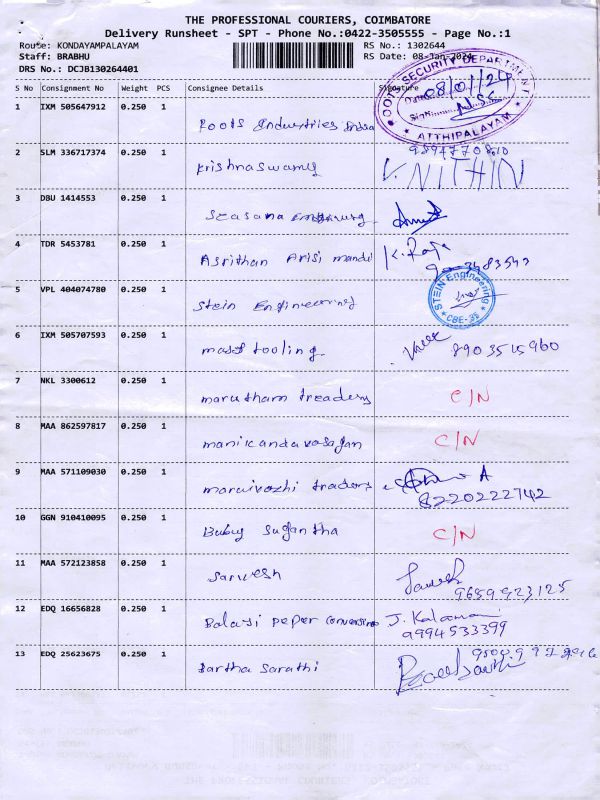 THE PROFESSIONAL COURIERS, COIMBATORE
Delivery Runsheet - SPT - Phone No.:0422-3505555 - Page No.:1
Route: KONDAYAMPALAYAM RS No.: 1302644
Staff: BRABHU RS Date: 08-Jan-2024
DRS No.: DCJB130264401
S No Consignment No Weight PCS Consignee Details Signature
SECURITY DEPARTMENT
Date: 08/01/24
Sign:
ATTHIPALAYAM
1 IXM 505647912 0.250 1 Roots Industries India
2 SLM 336717374 0.250 1 Krishnaswamy V. NITHIN
3 DBU 1414553 0.250 1
4 TDR 5453781 0.250 1 Asrithan Arisi mandi K. Raja
5 VPL 404074780 0.250 1 Stein Engineering STEIN Engineering CBE-35
6 IXM 505707593 0.250 1 mast tooling 8903515960
7 NKL 3300612 0.250 1 marutham treaders C/N
8 MAA 862597817 0.250 1 manikandavasagan C/N
9 MAA 571109030 0.250 1 traders 8220222742
10 GGN 910410095 0.250 1 Bubuy Sugantha C/N
11 MAA 572123858 0.250 1 Sarvesh 9659923125
12 EDQ 16656828 0.250 1 Balaji peper conversions J. Kalamani
9994533399
13 EDQ 25623675 0.250 1 Partha Sarathi